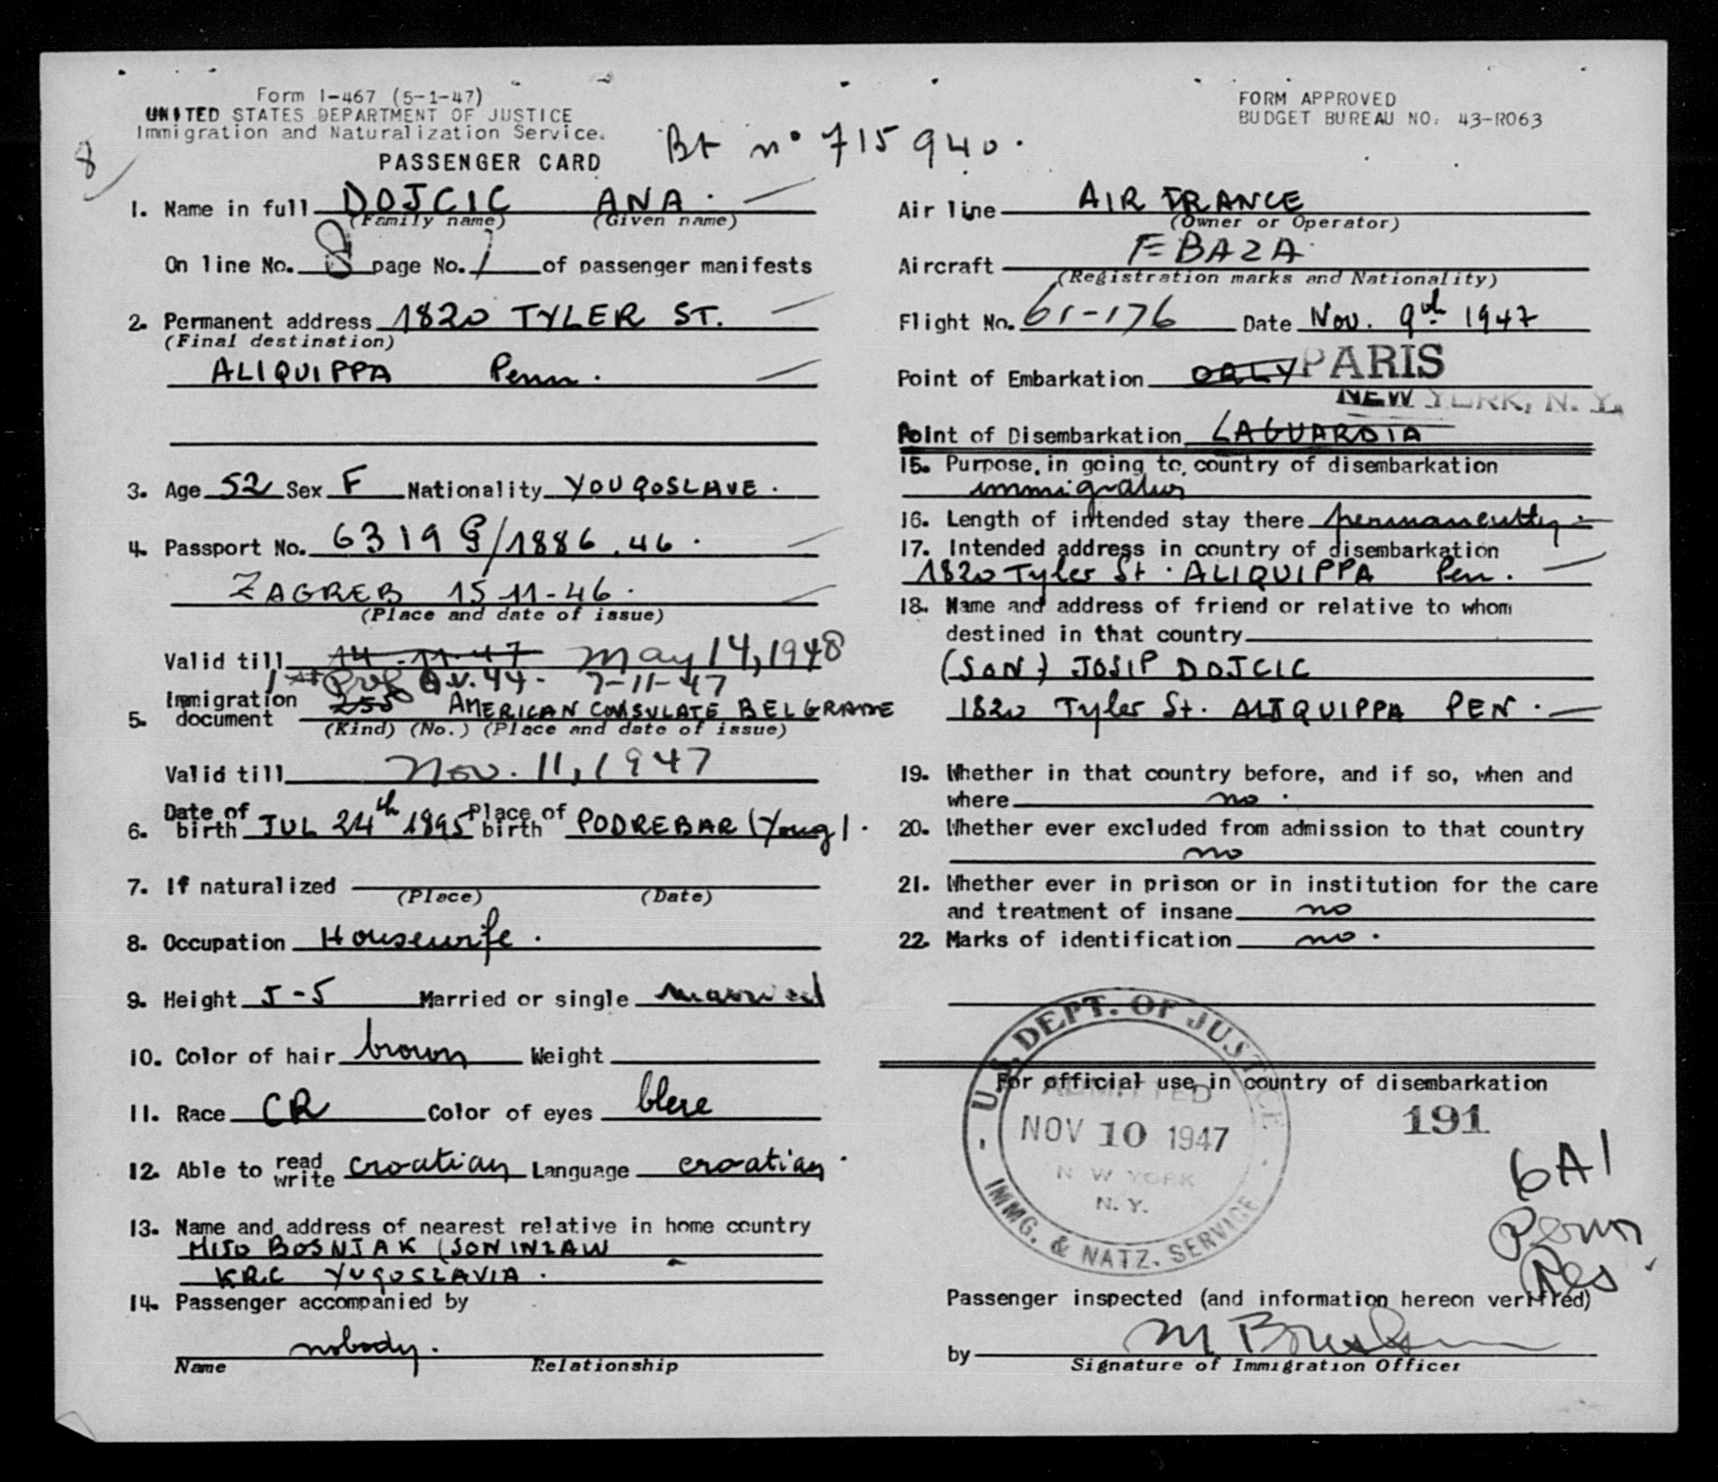 Form I-467 (5-1-47)
UNITED STATES DEPARTMENT OF JUSTICE
Immigration and Naturalization Service.
PASSENGER CARD
Bt n° 715940.
FORM APPROVED
BUDGET BUREAU NO. 43-R063
8
1. Name in full DOJCIC ANA.
(Family name) (Given name)
On line No. 8 page No. 1 of passenger manifests
2. Permanent address 1820 TYLER ST.
(Final destination)
ALIQUIPPA Penn.
3. Age 52 Sex F Nationality YOUGOSLAVE.
4. Passport No. 6319 G/1886.46.
ZAGREB 15-11-46.
(Place and date of issue)
Valid till 14-11-47 May 14, 1948
7-11-47
5. Immigration document AMERICAN CONSULATE BELGRADE
(Kind) (No.) (Place and date of issue)
Valid till Nov. 11, 1947
6. Date of birth JUL 24th 1895 Place of birth PODREBAR (Youg).
7. If naturalized
(Place) (Date)
8. Occupation Housewife.
9. Height 5-5 Married or single married
10. Color of hair brown Weight
11. Race CR Color of eyes blue
12. Able to read write croatian Language croatian.
13. Name and address of nearest relative in home country
MIJO BOSNJAK (SON IN LAW
KRC YUGOSLAVIA.
14. Passenger accompanied by
nobody.
Name Relationship
Air line AIR FRANCE
(Owner or Operator)
Aircraft F BAZA
(Registration marks and Nationality)
Flight No. 61-176 Date Nov. 9th 1947
Point of Embarkation ORLY PARIS
NEW YORK, N. Y.
Point of Disembarkation LAGUARDIA
15. Purpose in going to country of disembarkation
immigration
16. Length of intended stay there permanently.
17. Intended address in country of disembarkation
1820 Tyler St. ALIQUIPPA Pen.
18. Name and address of friend or relative to whom
destined in that country
(SON) JOSIP DOJCIC
1820 Tyler St. ALIQUIPPA PEN.
19. Whether in that country before, and if so, when and
where no.
20. Whether ever excluded from admission to that country
no
21. Whether ever in prison or in institution for the care
and treatment of insane no
22. Marks of identification no.
For official use in country of disembarkation
U.S. DEPT. OF JUSTICE
ADMITTED
NOV 10 1947
NEW YORK
N. Y.
IMMG. & NATZ. SERVICE
191
6A1
Perm
Res.
Passenger inspected (and information hereon verified)
by
Signature of Immigration Officer